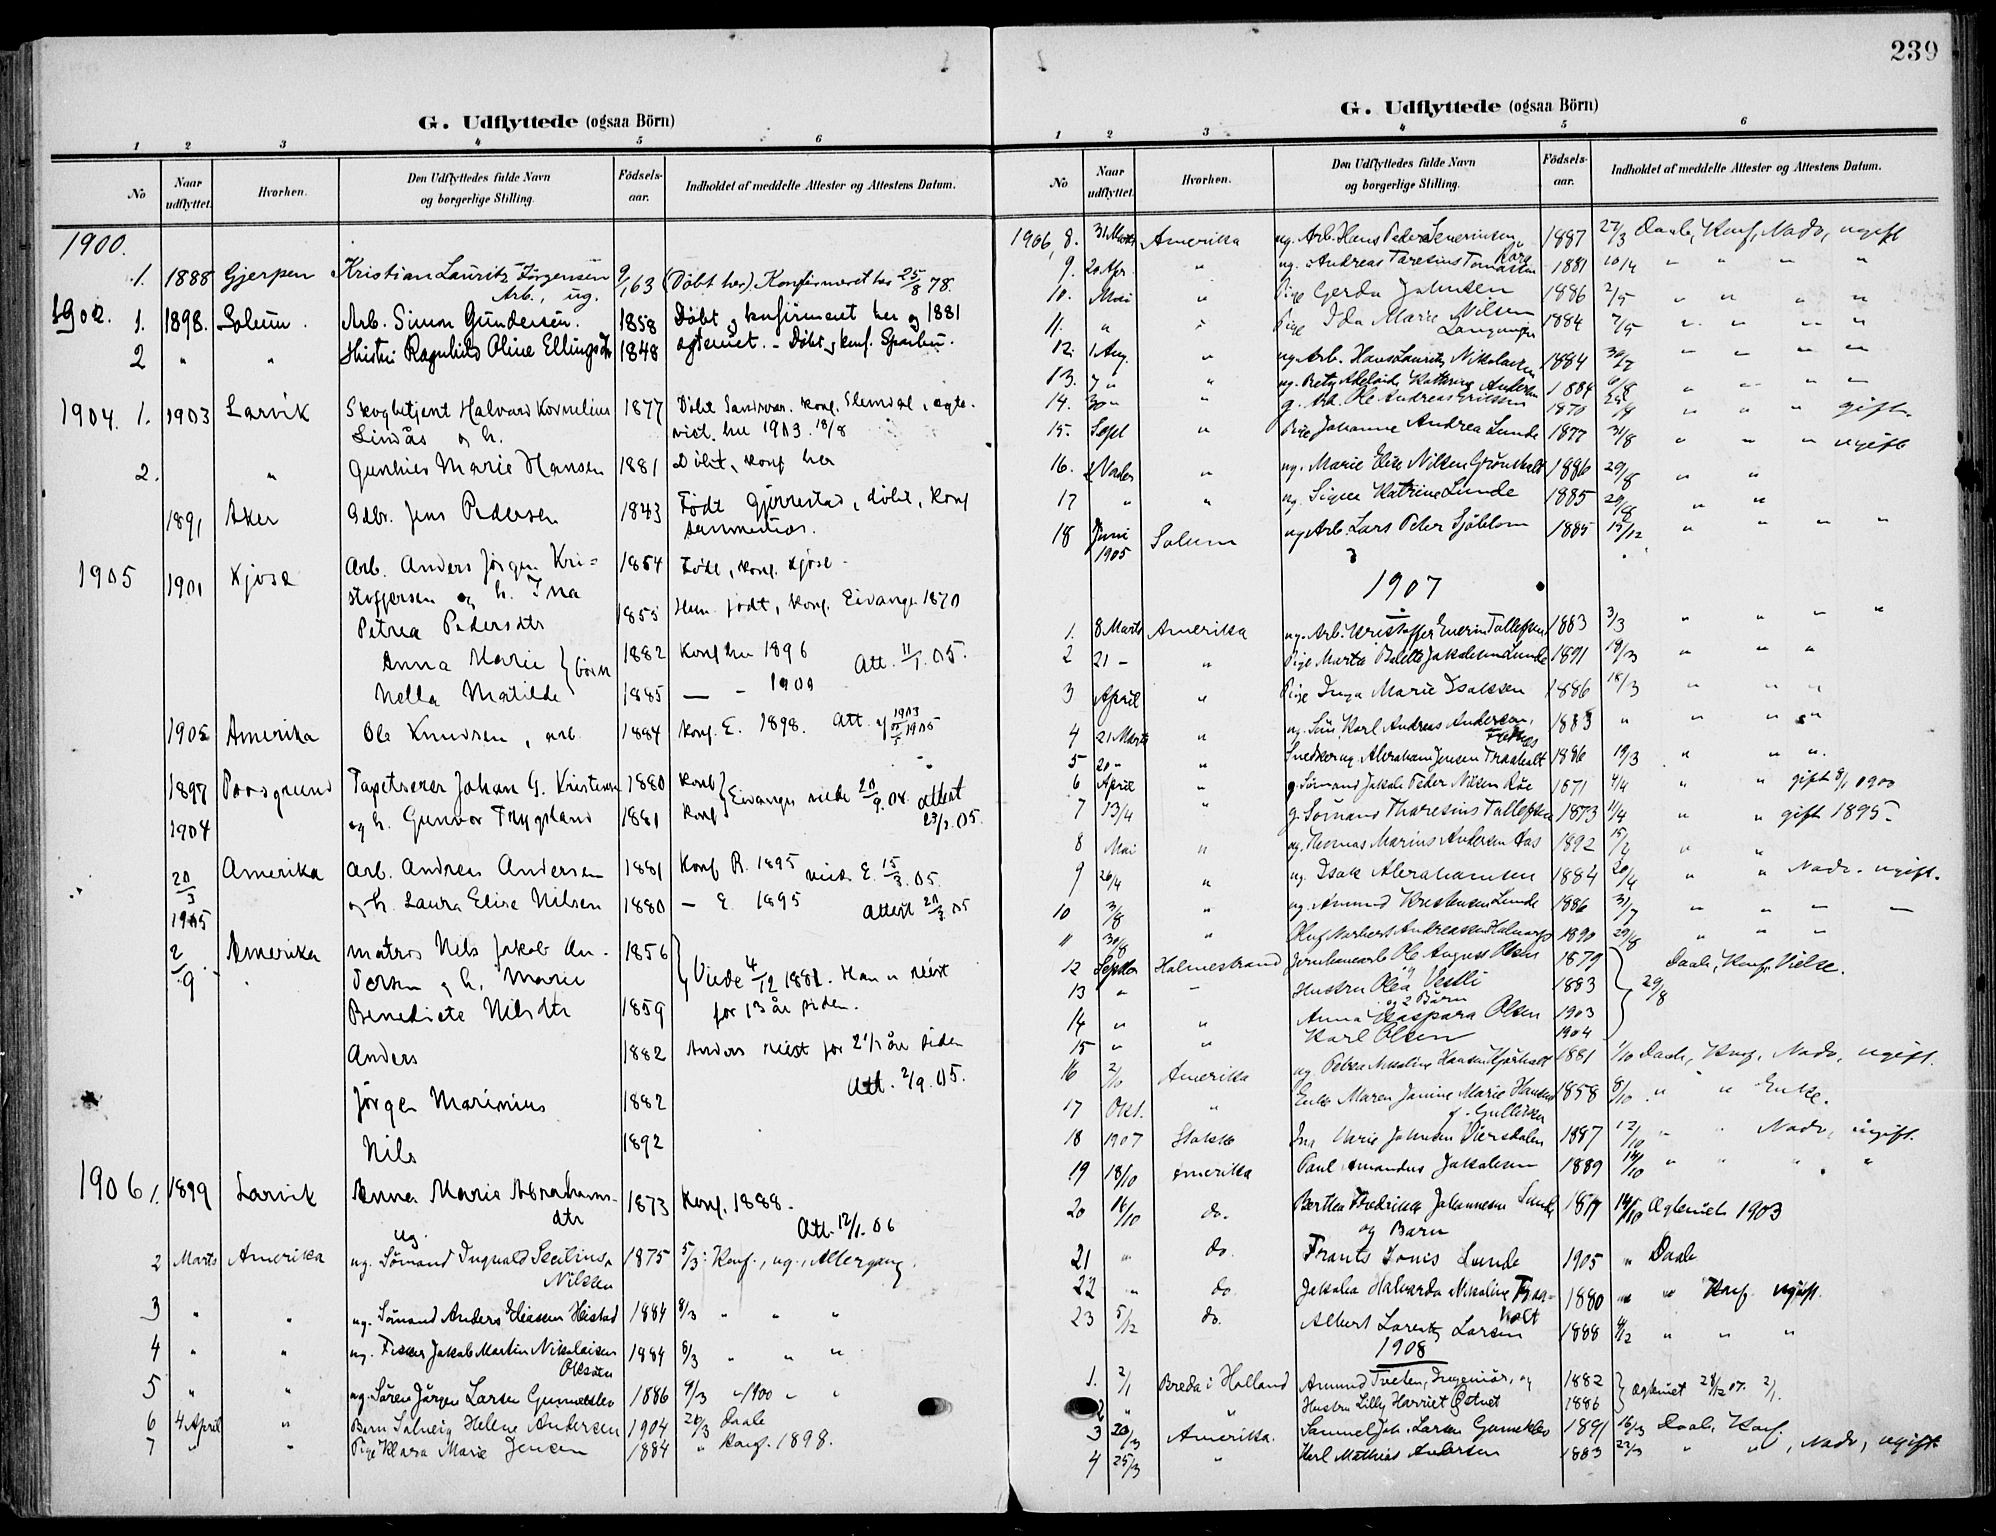 239
G. Udflyttede (ogsaa Börn)
1 2 3 4 5 6
No
Naar udflyttet.
Hvorhen.
Den Udflyttedes fulde Navn og borgerlige Stilling.
Födsels-aar.
Indholdet af meddelte Attester og Attestens Datum.
1900.
1. 1888 Gjerpen Kristian Lauritz Jørgensen 9/1 63 (Döbt her) Konfirmeret her 25/8 78.
Arb., ug.
1902. 1. 1898. Solum. Arb. Simon Gundersen. 1858 Döbt og konfirmeret her og 1881
2 " " Hustru Ragnhild Oline Ellingsdtr 1848 egteviet. - Döbt, konf.
1904. 1. 1903 Larvik Skogbetjent Halvard Kornelius 1877 Döbt Sandvær. konf. Slemdal, egte-
Lindås og h. viet her 1903 18/8
2. " Gunhild Marie Hansen 1881 Döbt, konf her
1891 Aker Gdbr. Jens Pedersen 1843 Født Gjerrestad, döbt, konf
sammesteds.
1905 1901 Kjose Arb. Anders Jörgen Kri= 1854 Født, konf. Kjose.
stoffersen og h. Ina
Petrea Pedersdtr 1855 Hun født, konf. Eivanger 1870
Anna Marie } børn 1882 Konf her 1896 Att. 11/1. 05.
Nella Matilde 1885 — - 1900
1902 Amerika Ole Knudsen, arb. 1884 konf. E. 1898. Att. 1903
1905
1897 Porsgrund Tapetserer Johan G. Kristensen 1880 konf } Eivanger viede 20/9. 04. attest
1904 og h. Gunvor Trygsland 1881 konf 23/2. 05.
20/3 1905 Amerika Arb. Andreas Andersen 1881 Konf R. 1895 viede E. 15/3. 05.
og h. Laura Elise Nilsen 1880 — E. 1895 Attest 20/3. 05
2/9. Amerika matros Nils Jakob An- 1856 } Viede 4/12 1881. Han er reist
dersen og h. Marie
Benedicte Nilsdtr 1859 for 13 år siden.
Anders 1882 Anders reist for 2 1/2 år siden
Att. 2/9. 05.
Jörgen Marinius 1882
Nils 1892
1906 1. 1899 Larvik Anna Marie Abrahams- 1873 Konf. 1888.
dtr
ug. Att. 12/1. 06
2 Marts Amerika ug. Sömand Ingvald Secilius 1875 5/3: Konf., ug., Altergang.
Nilsen
3 " " ug. Sömand Anders Eliasen Heistad 1884 8/3 " " "
4 " " ug. Fisker Jakob Martin Nikolaisen 1884 8/3 " " "
Olksaen
5 " " ug. Sören Jörgen Larsen Gunneklev 1886 9/3 " 1900 " "
6 4 April " Barn Solveig Helene Andersen 1904 20/3 Daab
7 " " Pige Klara Marie Jensen 1884 " Konf. 1898.
G. Udflyttede (ogsaa Börn)
1 2 3 4 5 6
No
Naar udflyttet.
Hvorhen.
Den Udflyttedes fulde Navn og borgerlige Stilling.
Födsels-aar.
Indholdet af meddelte Attester og Attestens Datum.
1906, 8. 31 Marts Amerika ug. Arb. Hans Peder Severinsen 1887 27/3 Daab, Konf, Nadv, ugift
9. 20 Apr. " ug. Andreas Taresius Tomassen 1881 10/4 " " " "
10. Mai " Pige Gerda Johnsen 1886 2/5 " " " "
11. " " Pige Ida Marie Nilsen 1884 7/5 " " " "
Langangen
12. 1 Aug. " ug. Arb. Hans Lauritz Nikolaisen 1884 30/7 " " " "
13. 7 " " ug. Betzy Adelaide Kathrine Andersen 1884 6/8 " " " "
14. 30 " " g. Arb. Ole Andreas Eriksen 1870 " " " gift.
15. Sept " Pige Johanne Andrea Lunde 1877 31/8 " " " ugift
16. " ug. Marie Elise Nilsen Grönholt 1886 29/8 " "
17 " " ug. Signe Katrine Lunde 1885 29/8 " "
18 Juni 1905 Solum ug Arb. Lars Peter Sjöblom 1885 15/12 " " " "
1907
1. 8 Marts Amerika ug. Arb. Kristoffer Tollefsen 1883 3/3 " " " "
2 21 - " Pige Marta Bolette Jakobsen Lunde 1891 19/3 " " "
3 April " Pige Inga Marie Isaksen 1886 18/3 " " "
4 21 Marts " ug. Karl Andreas Andersen, 1883 " " " "
5 20 " " Snedker ug. Abraham Jensen Traaholt 1886 19/3 " " "
6 April " g. Sömand Jakob Peder Nilsen Röe 1871 4/4 " " gift 8/1 1900
7 13/4 " g. Sömand Tharesius Tollefsen 1873 11/4 " " gift 1895.
8 Mai " ug. Thomas Marius Andersen Aas 1892 15/2 " "
9 26/4 " ug. Isak Abrahamsen 1884 20/4 " " Nadv. ugift.
10 3/8 " ug. Amund Kristensen Lunde 1886 31/7 " " " —
11 30/8 " Oluf Norbert Andreassen 1890 29/8 " " "
12 Septbr Holmestrand Jernbanearb. Ole August Olsen 1879 } Daab, Konf, Vielse.
13 " - Hustru Olea Vestli 1883 29/8
og 2 Börn
14 " " Anna Kaspara Olsen 1903
15 " " Karl Olsen 1904
16 2/10 Amerika ug. Petra Nikoline Hansen 1881 1/10 Daab, Konf, Nadv, ugift.
17 Okt. " Enke Maren Janine Marie Hansen 1858 8/10 " " Enke.
f. Gulliksen
18 1907 Stokke Ina Marie Johnsen Viersdalen 1887 12/10 " " Nadv, ugift.
19 18/10 Amerika Paul Amandus Jakobsen 1889 14/10 " " " "
20 16/10 do. Berthea Fredrikke Johannesen Lunde 1877 14/10 Ægteviet 1903
og Barn
21 " do. Frants Louis Lunde 1905 " Daab
22 " do. Jakobia Halvarda Nikoline Traa- 1880 " " Konf. ugift.
holt
23 5/12 do. Albert Lorentz Larsen 1888 4/2 " " "
1908
1. 2/1 Breda i Holland Amund Tveten, Ingeniør, og 1882 } Ægteviet 28/12 07. 2/1.
2 " " Hustru Lilly Harriet 1886
3 20/3 Amerika. Samuel Joh. Larsen Gunneklev 1891 16/3 Daab, Konf.
4 25/3 " Karl Mathias Andersen 1883 23/3 " ", Nadv, ugift.